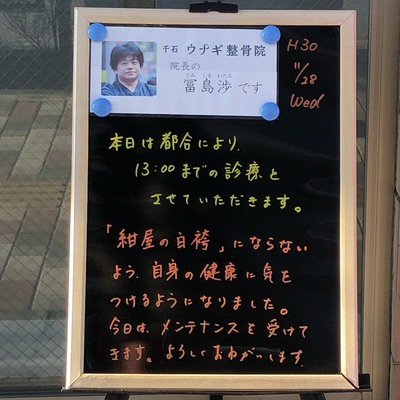 千石 ウナギ整骨院
院長の
とみ しま わたる
冨島渉です
H30
11/28
Wed
本日は都合により、
13:00までの診療と
させていただきます。
「紺屋の白袴」にならない
よう、自身の健康に気を
つけるようになりました。
今日は、メンテナンスを受けて
きます。よろしくおねがいします.